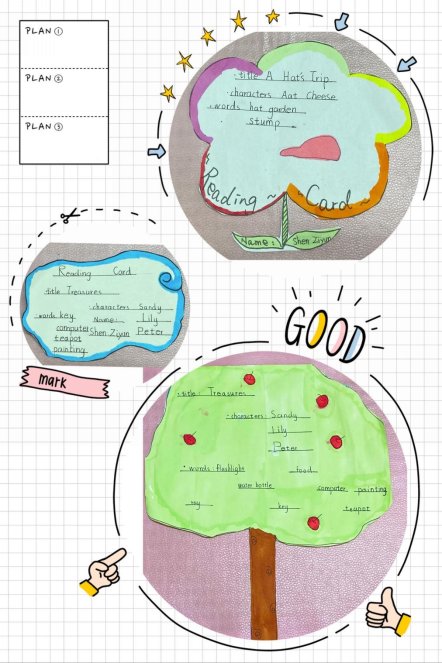 PLAN ①
PLAN ②
PLAN ③
title A Hat's Trip
characters Aat Cheese
words hat garden
stump
Reading ~ Card ~
Name: Shen Ziyun
Reading Card
title Treasures
characters Sandy
words key Name: Lily
computer Shen Ziyun Peter
teapot
painting
mark
GOOD
title: Treasures
characters: Sandy
Lily
Peter
words: flashlight food
water bottle computer painting
toy key teapot